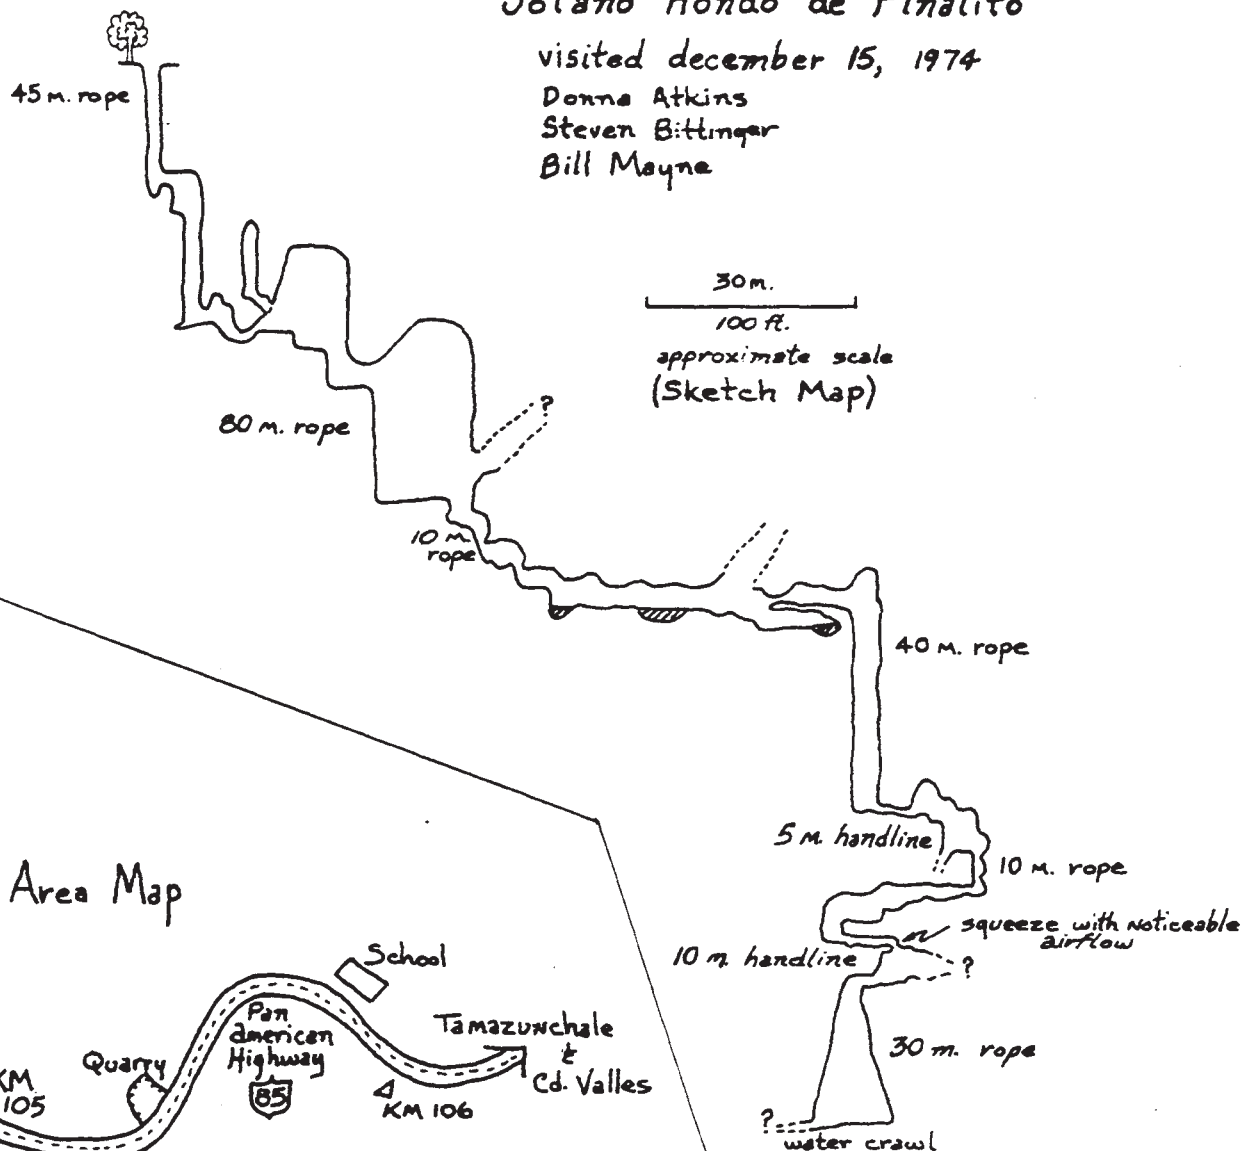 Sotano Hondo de Pinalito
visited december 15, 1974
Donna Atkins
Steven Bittinger
Bill Mayne
45 m. rope
30 m.
100 ft.
approximate scale
(Sketch Map)
?
80 m. rope
10 m.
rope
40 m. rope
5 m. handline
10 m. rope
squeeze with noticeable
airflow
10 m. handline
?
30 m. rope
?
water crawl
Area Map
School
Pan
american
Highway
85
Tamazunchale
&
Cd. Valles
Quarry
KM
105
KM 106